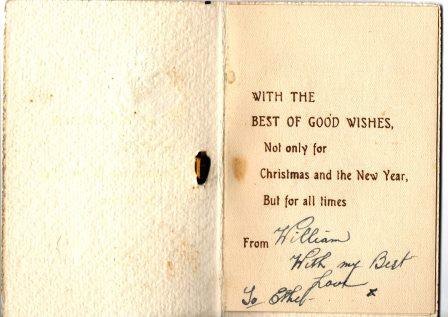 WITH THE
BEST OF GOOD WISHES,
Not only for
Christmas and the New Year,
But for all times
From William
With my Best
Love
To Ethel x